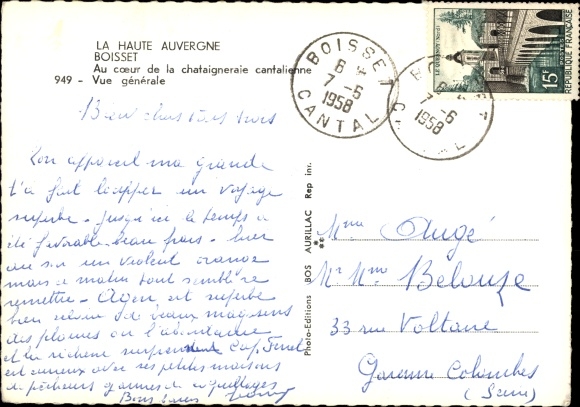 LA HAUTE AUVERGNE
BOISSET
Au cœur de la chataigneraie cantalienne
949 - Vue générale
BOISSET
7-6
1958
CANTAL
BOISSET
7-6
1958
CANTAL
15F
POSTES
REPUBLIQUE FRANÇAISE
Bien chers tous trois
Ton appareil ma grande
t'a fait louper un voyage
superbe - jusqu'ici le temps a
été favorable beau frais - hier
on a eu un violent orage
mais ce matin tout semble se
remettre - Agen est superbe
bien de beaux magasins
des plaines où l'abondance
et la richesse surprendrait Cap Ferret
est curieux avec ses petites maisons
de pêcheurs garnies de coquillages
Bons baisers
Photo-Editions BOS AURILLAC Rep int.
Mme Augé
Mr Mme Belouze
33 rue Voltaire
Garenne Colombes
(Seine)